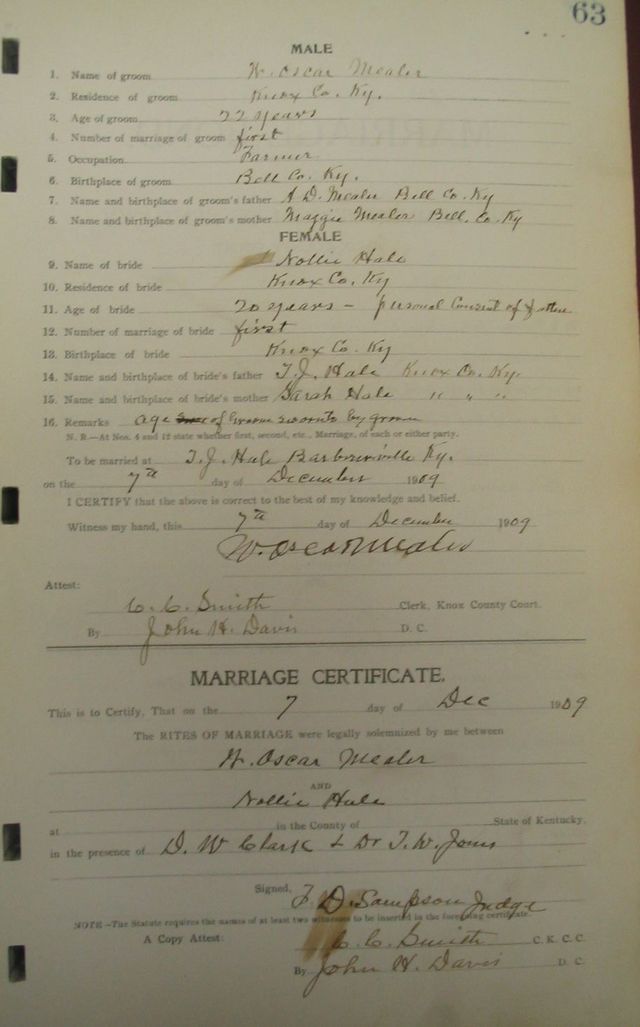 63
MALE
1. Name of groom W. Oscar Mealer
2. Residence of groom Knox Co. Ky.
3. Age of groom 22 years
4. Number of marriage of groom first
5. Occupation Farmer
6. Birthplace of groom Bell Co. Ky.
7. Name and birthplace of groom's father A D. Mealer Bell Co. Ky
8. Name and birthplace of groom's mother Maggie Mealer Bell. Co. Ky
FEMALE
9. Name of bride Nollie Hale
10. Residence of bride Knox Co. Ky
11. Age of bride 20 years – personal Consent of father
12. Number of marriage of bride first
13. Birthplace of bride Knox Co. Ky
14. Name and birthplace of bride's father T. J. Hale Knox Co. Ky.
15. Name and birthplace of bride's mother Sarah Hale " " "
16. Remarks age of Groom sworn to by groom
N. B.—At Nos. 4 and 12 state whether first, second, etc., Marriage, of each or either party.
To be married at T. J. Hale Barbourville Ky.
on the 7th day of December 1909
I CERTIFY that the above is correct to the best of my knowledge and belief.
Witness my hand, this 7th day of December 1909
W. Oscar Mealer
Attest:
C. C. Smith Clerk, Knox County Court.
By John H. Davis D. C.
MARRIAGE CERTIFICATE.
This is to Certify, That on the 7 day of Dec 1909
The RITES OF MARRIAGE were legally solemnized by me between
W. Oscar Mealer
AND
Nollie Hale
at in the County of State of Kentucky,
in the presence of D. W Clark & Dr T. W. Jones
Signed, F D. Sampson Judge
NOTE—The Statute requires the names of at least two witnesses to be inserted in the foregoing certificate.
A Copy Attest: C. C. Smith C. K. C. C.
By John H. Davis D. C.